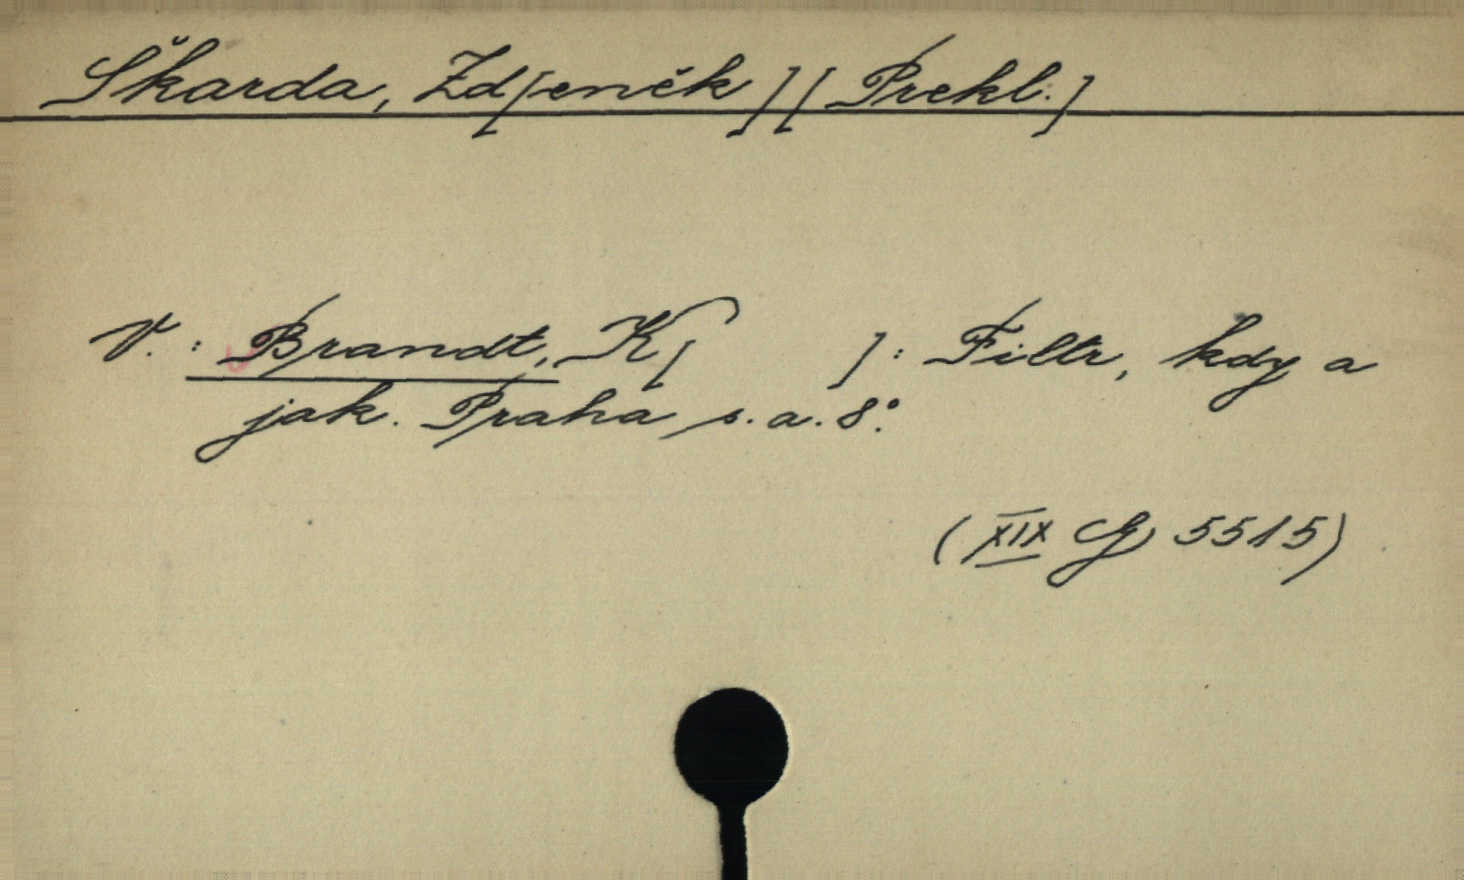 Škarda, Zd[eněk] [Prekl.]
V.: Brandt, K[ ]: Filtr, kdy a
jak. Praha s. a. 8°.
(XIX G 5515)